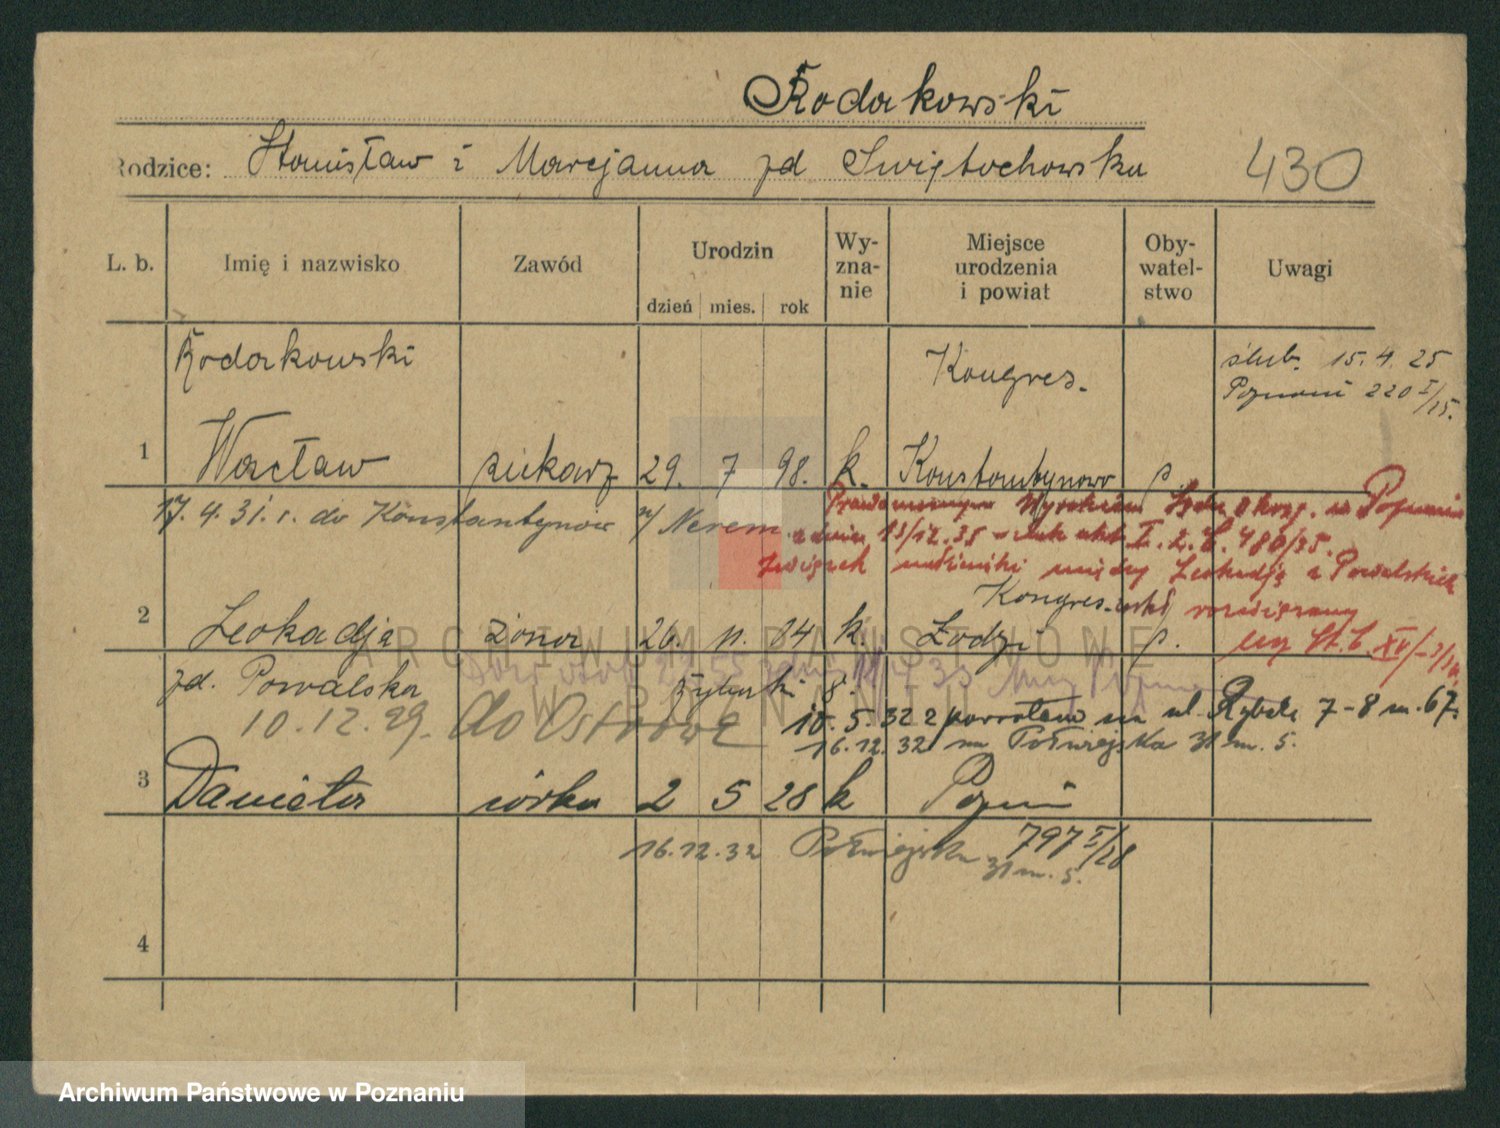 Rodakowski
Rodzice: Stanisław i Marcjanna zd Swiętochowska
430
L. b. Imię i nazwisko Zawód Urodzin dzień mies. rok Wy-zna-nie Miejsce urodzenia i powiat Oby-watel-stwo Uwagi
Rodakowski Kongres. ślub. 15.4.25
Poznań 220 I/25.
1 Wacław piekarz 29. 7 98. k. Konstantynowo p.
17.4.31. r. do Konstantynów n/ Nerem
Prawomocnym Wyrokiem Sądu Okręg. w Poznaniu
z dnia 13/12.35
związek małżeński między Leokadją z Powalskich
Kongres. rozwiązany
2 Leokadja żona 26. 11. 04 k. Łodzi p.
zd. Powalska Rybaki 8.
10.12.29. do Ostrowa 10.5.32 z powrotem na ul. Rybaki 7-8 m. 67
16.12.32 na Półwiejska 31 m. 5.
3 Danieta córka 2 5 28 k Poznań
797 I/28
16.12.32 Półwiejska 31 m. 5.
4
ARCHIWUM PAŃSTWOWE
W POZNANIU
Archiwum Państwowe w Poznaniu